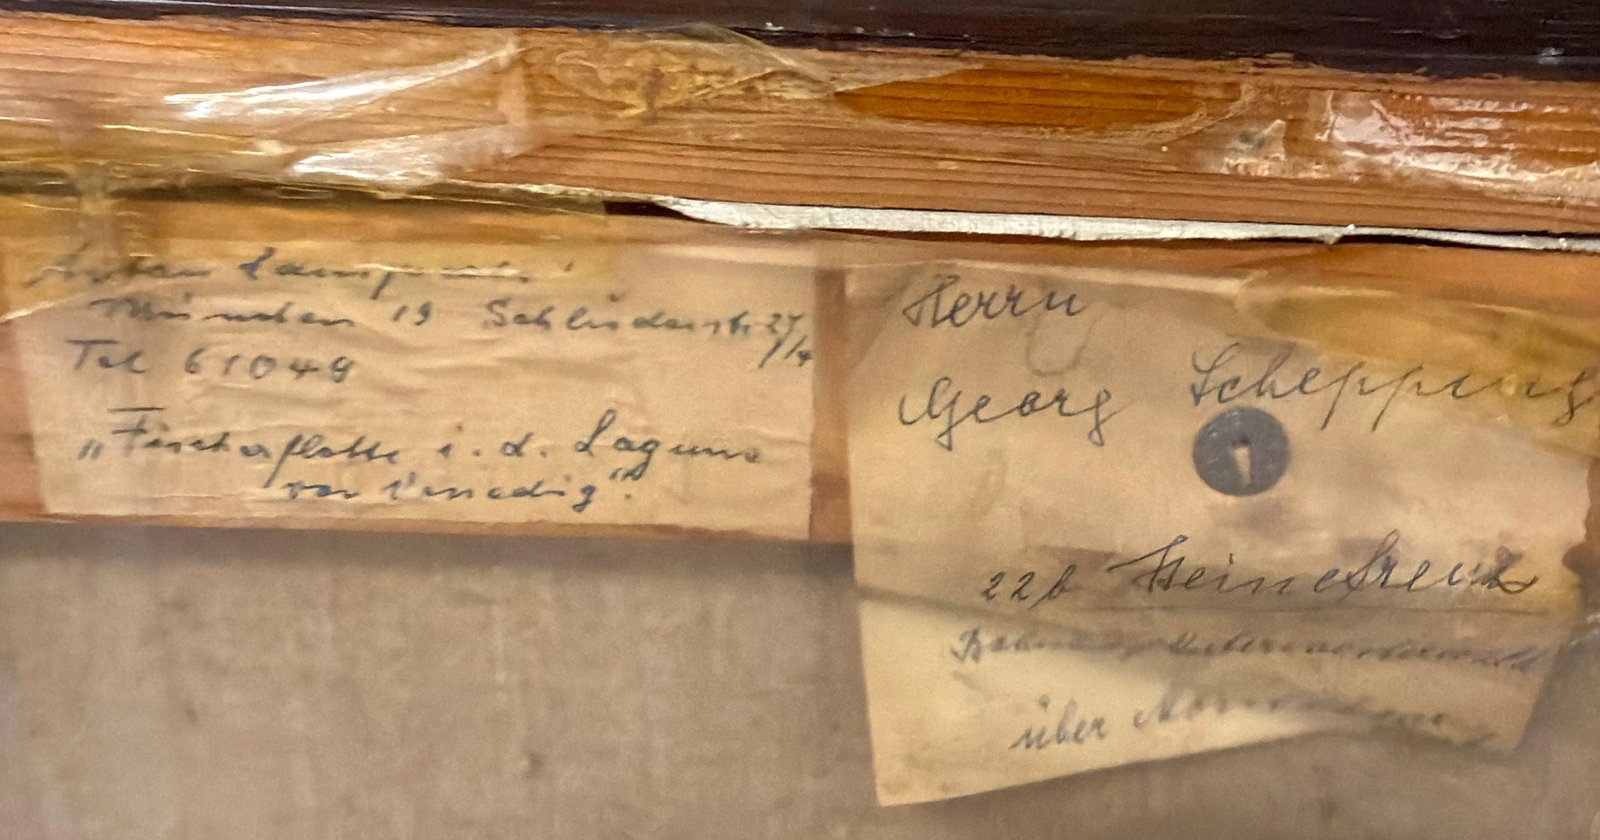 München 19 Schlüderstr. 27/4
Tel 61049
„Fischerflotte i. d. Lagune
vor Venedig".
Herrn
Georg Schepping
22b Steinefrenz
über